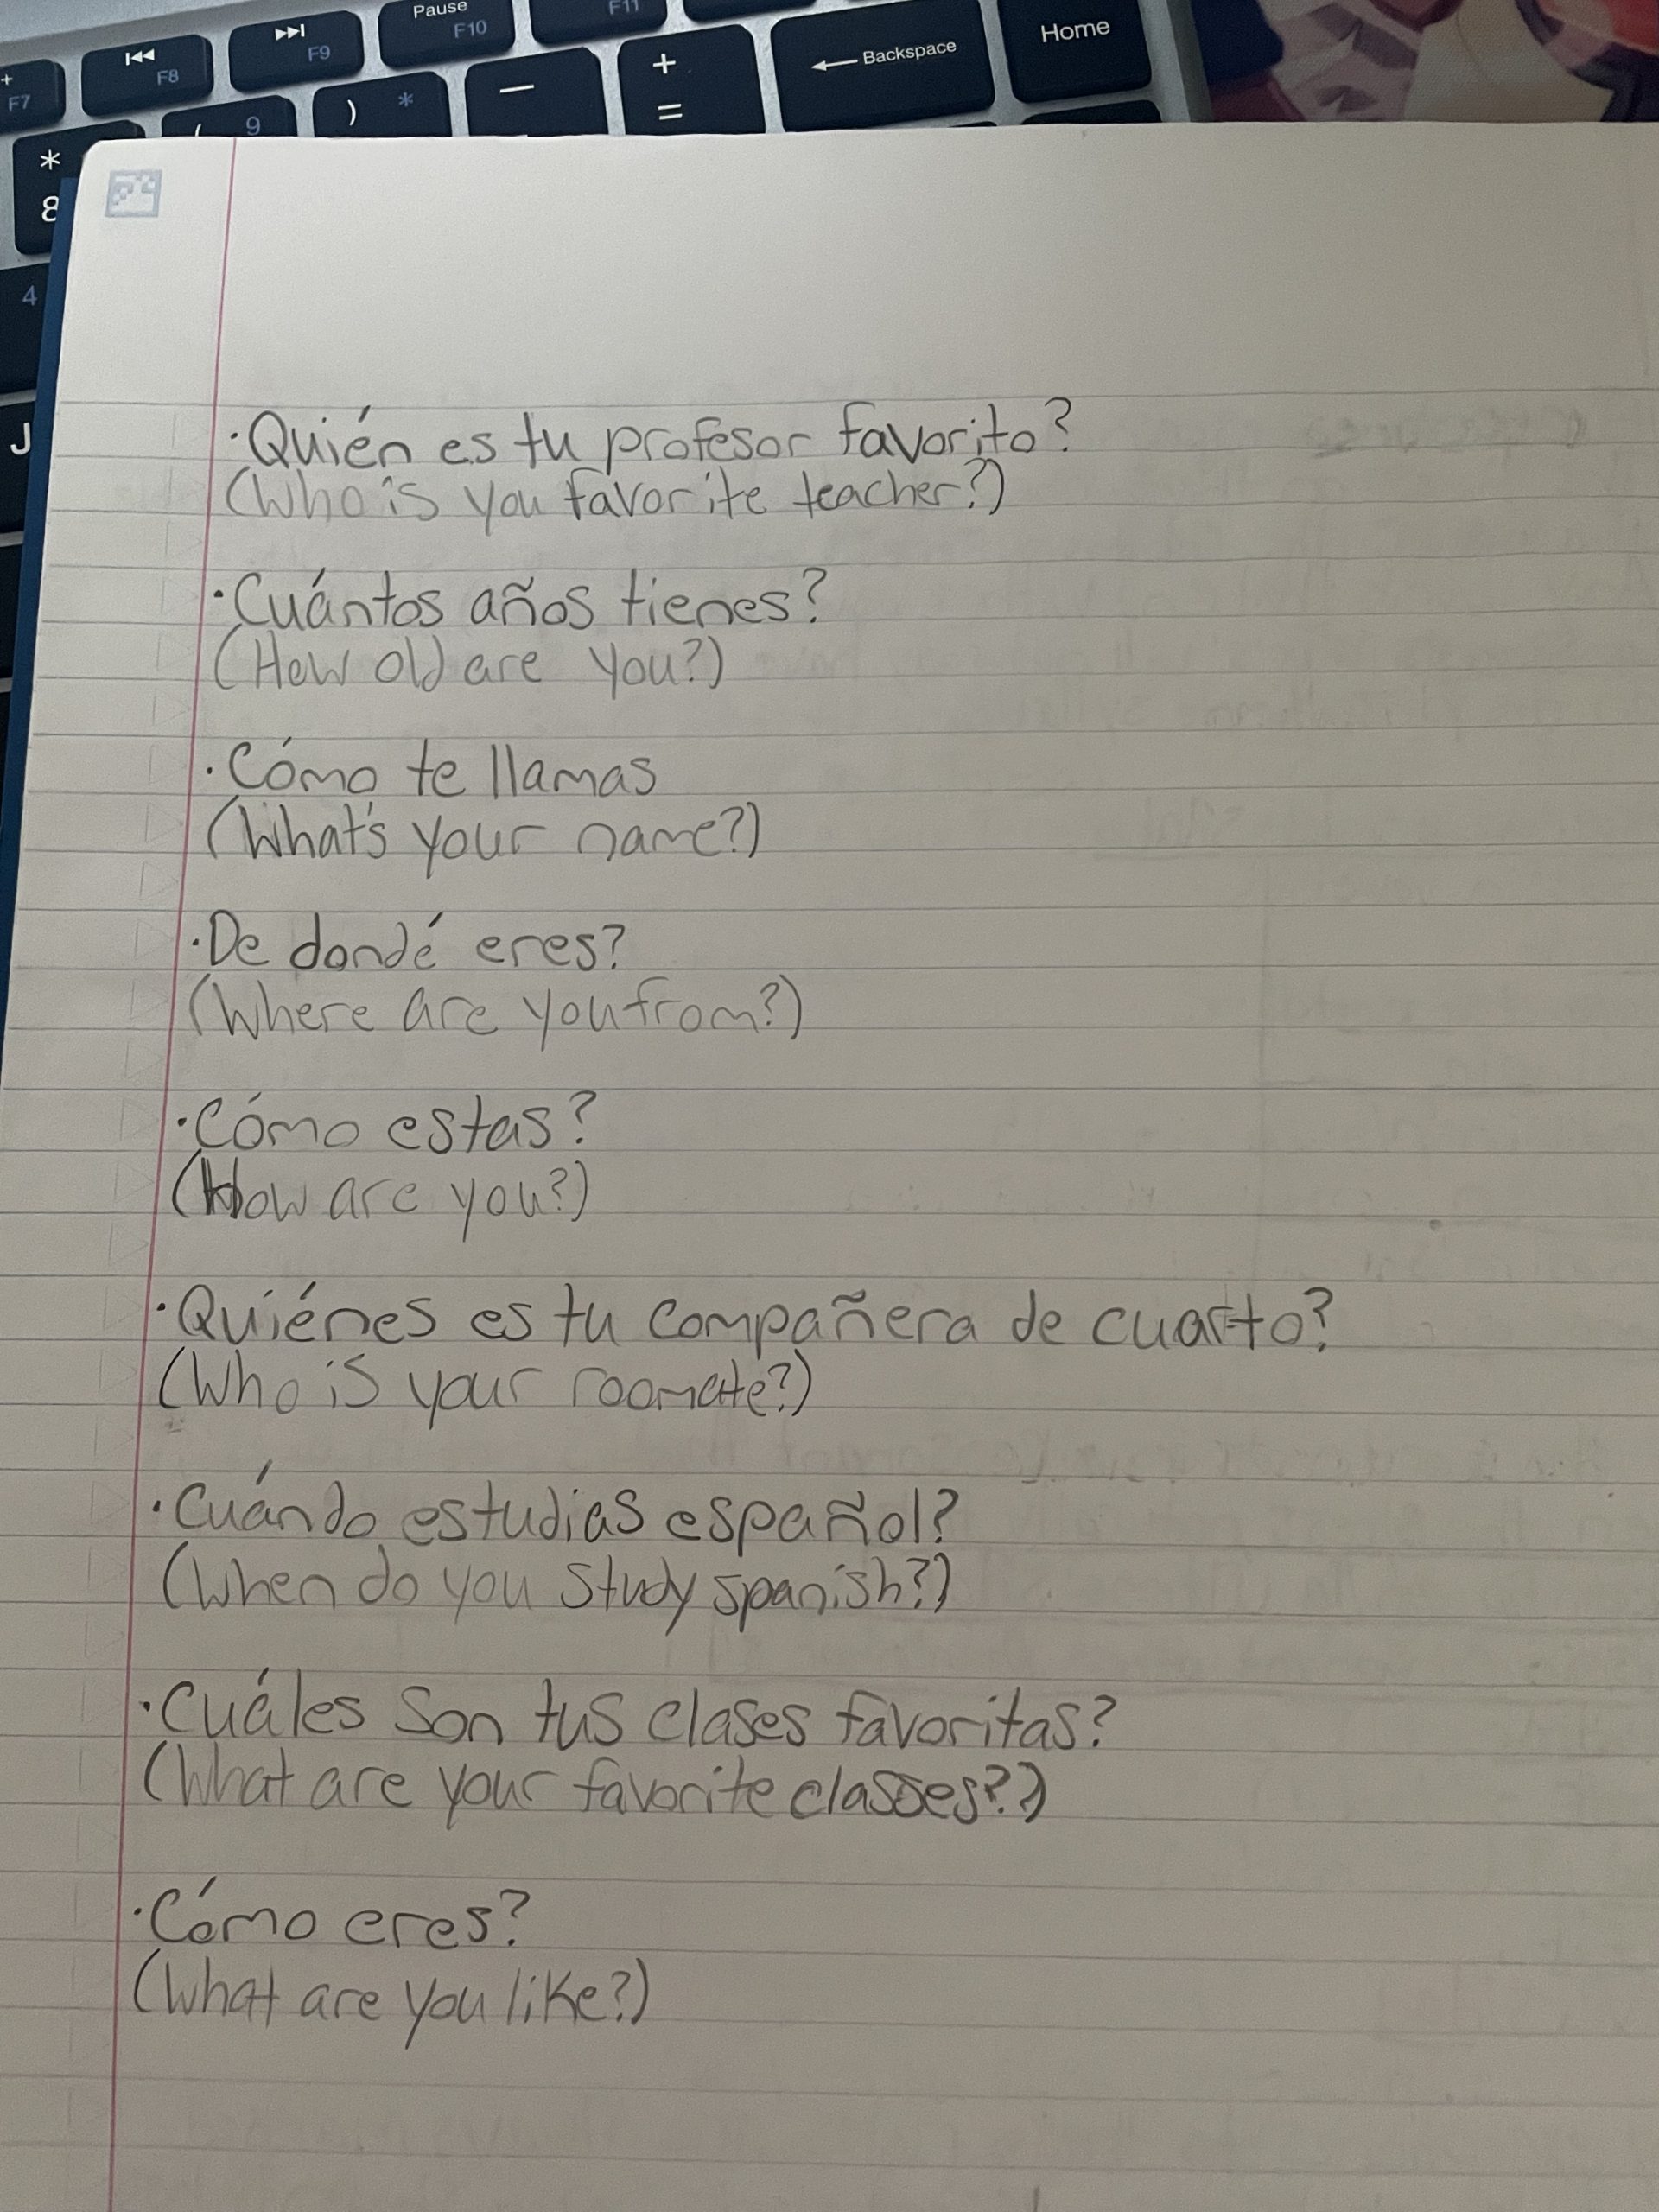 Pause
F11
F10
F9
F8
+
F7
Home
← Backspace
+
=
—
) *
( 9
*
8
4
J
·Quién es tu profesor favorito?
(Who is you favorite teacher?)
·Cuántos años tienes?
(How old are you?)
·Cómo te llamas
(What's your name?)
·De dondé eres?
(Where are you from?)
·Cómo estas?
(How are you?)
·Quiénes es tu compañera de cuarto?
(Who is your roomate?)
·Cuándo estudias español?
(When do you study spanish?)
·Cuáles son tus clases favoritas?
(What are your favorite classes?)
·Cómo eres?
(What are you like?)